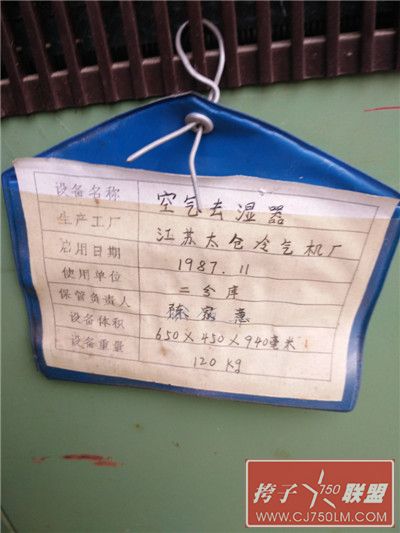 设备名称 空气去湿器
生产工厂 江苏太仓冷气机厂
启用日期 1987.11
使用单位 二分库
保管负责人
设备体积 650×450×940毫米
设备重量 120kg
挎子 750 联盟
WWW.CJ750LM.COM